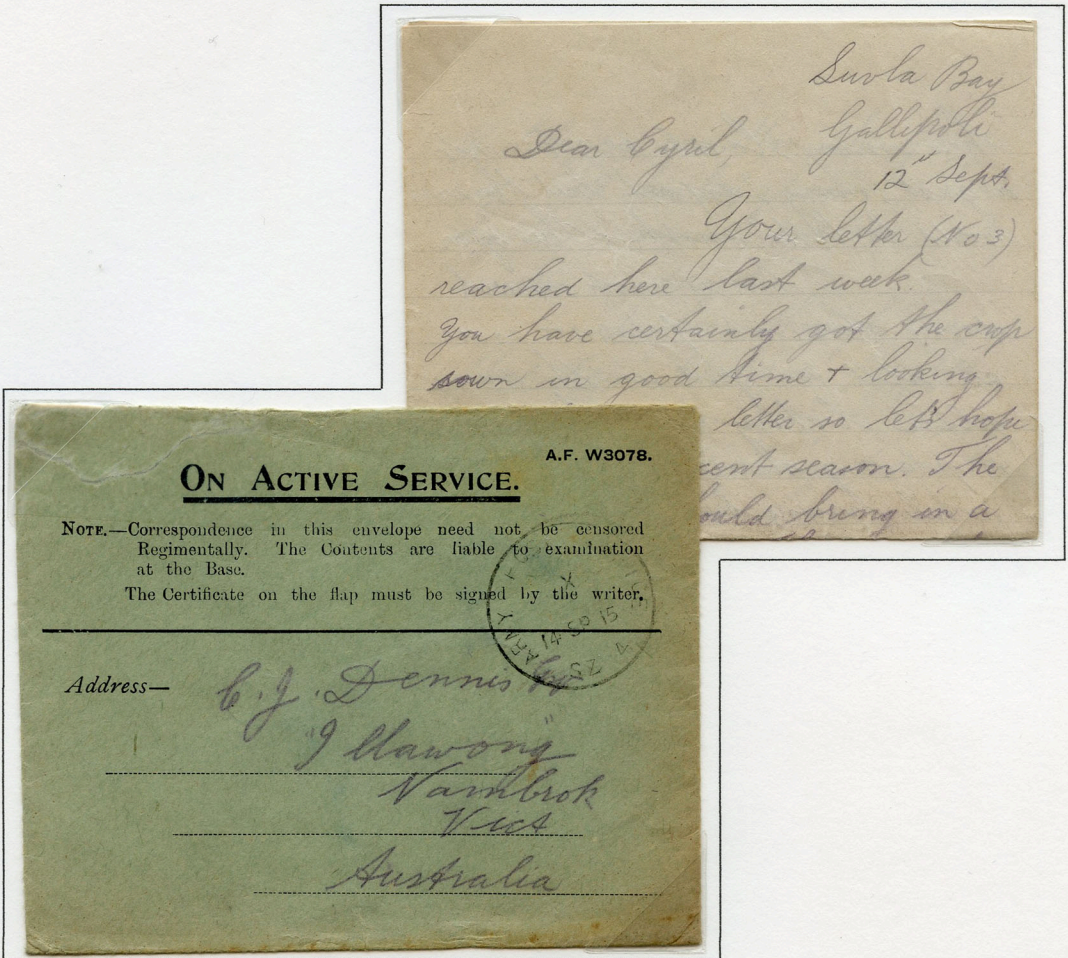 Suvla Bay
Gallipoli
12" Sept.
Dear Cyril,
Your letter (No 3)
reached here last week.
You have certainly got the crop
sown in good time + looking
letter so let's hope
cent season. The
ould bring in a
A.F. W3078.
ON ACTIVE SERVICE.
NOTE.—Correspondence in this envelope need not be censored
Regimentally. The Contents are liable to examination
at the Base.
The Certificate on the flap must be signed by the writer.
ARMY
X
14 SP 15
SZ 4
Address—
C. J. Dennis Esq
"Illawong"
Nambrok
Vict
Australia